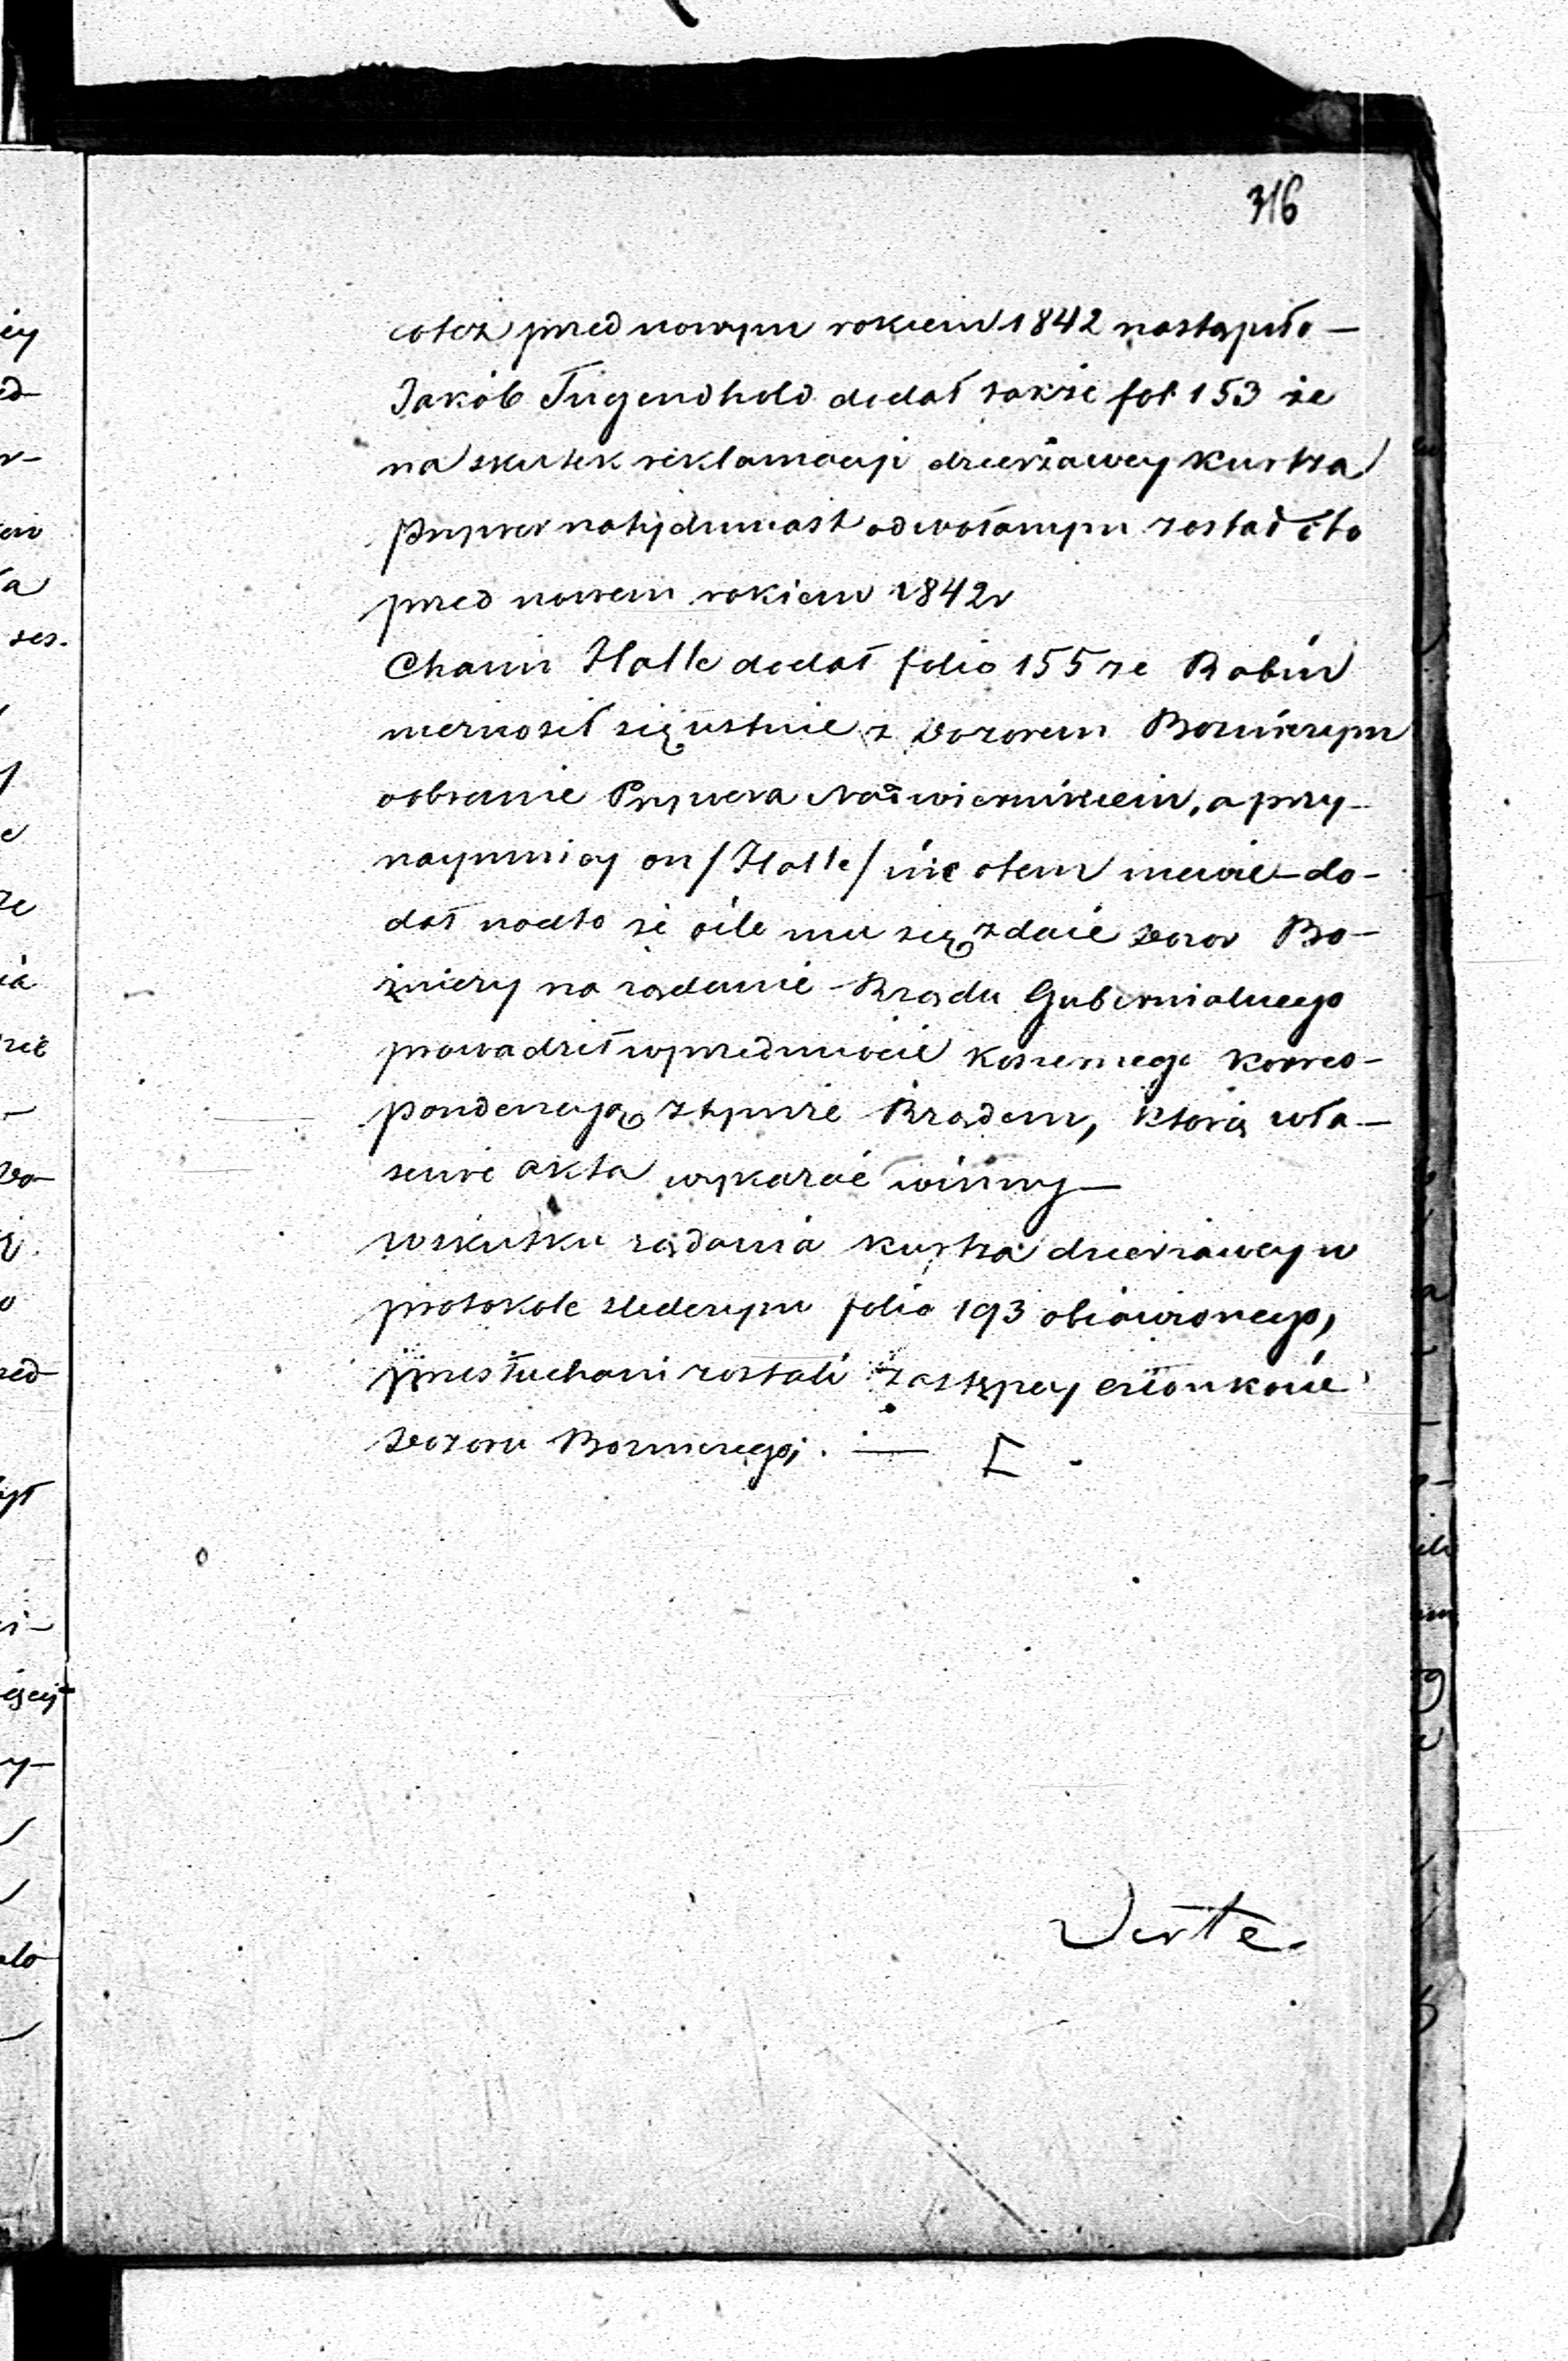 316
cotez przed nowym rokiem 1842 nastąpiło —
Jakób Tugendhold dodał takze fol 153 że
na skutek reklamacyi dzierżawcy Kurtza
Prywer natychmiast odwołanym został i to
przed nowem rokiem 1842r
Chaim Halle dodał folio 155 ze Rabin
nieznosił się ustnie z Dozorem Bozniczym
oobranie Prywera Nadwiernikiem, a przy-
naymniey on /Halle/ nic otem niewie — do-
dał nadto że oile mu się zdaie Dozor Bo-
żniczy na żądanie Rządu Gubernialnego
prowadził wprzedmiocie koszernego korres-
pondencyą ztymże Rządem, którą wła-
senne akta wykazać winny —
wskutku żądania Kurtza dzierżawcy w
protokole śledczym folio 193 obiawionego,
przesłuchani zostali Zastępcy członkowie
Dozoru Bozniczego; . —
Verte